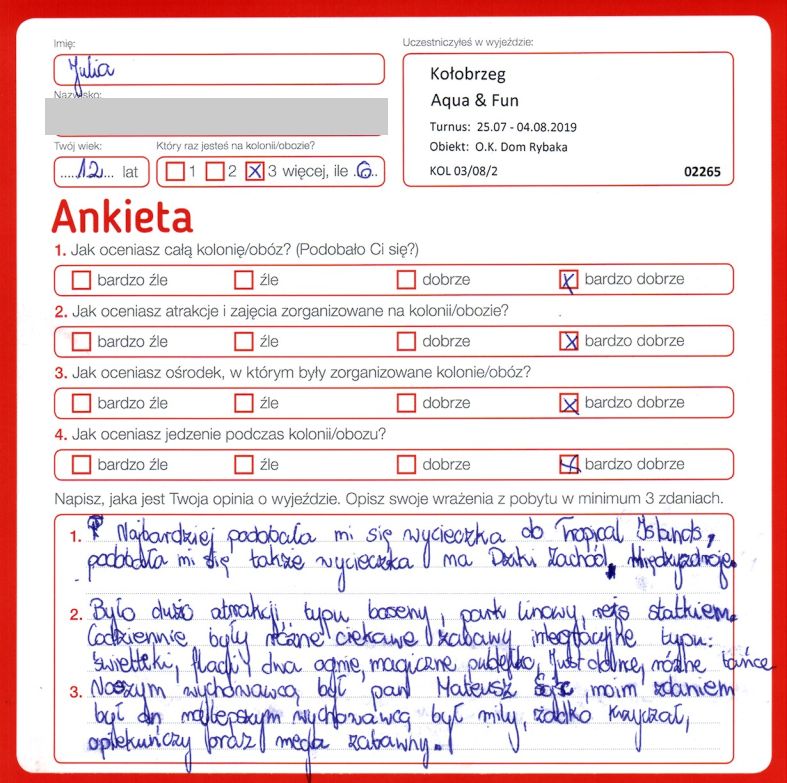 Imię:
Uczestniczyłeś w wyjeździe:
Julia
Kołobrzeg
Aqua & Fun
Nazwisko:
Turnus: 25.07 - 04.08.2019
Obiekt: O.K. Dom Rybaka
KOL 03/08/2 02265
Twój wiek: Który raz jesteś na kolonii/obozie?
.....12... lat 1 2 x 3 więcej, ile .6..
Ankieta
1. Jak oceniasz całą kolonię/obóz? (Podobało Ci się?)
bardzo źle źle dobrze x bardzo dobrze
2. Jak oceniasz atrakcje i zajęcia zorganizowane na kolonii/obozie?
bardzo źle źle dobrze x bardzo dobrze
3. Jak oceniasz ośrodek, w którym były zorganizowane kolonie/obóz?
bardzo źle źle dobrze x bardzo dobrze
4. Jak oceniasz jedzenie podczas kolonii/obozu?
bardzo źle źle dobrze x bardzo dobrze
Napisz, jaka jest Twoja opinia o wyjeździe. Opisz swoje wrażenia z pobytu w minimum 3 zdaniach.
1. Najbardziej podobała mi się wycieczka do Tropical Islands,
podobała mi się także wycieczka na Dziki Zachód, Międzyzdroje.
2. Było dużo atrakcji typu baseny, park linowy, rejs statkiem.
Codziennie były różne ciekawe zabawy integracyjne typu:
świetliki, flagi, dwa ognie, magiczne pudełko, Just dance, różne tańce
3. Naszym wychowawcą był pan Mateusz moim zdaniem
był najlepszym wychowawcą był miły, rzadko krzyczał,
opiekuńczy oraz mega zabawny.